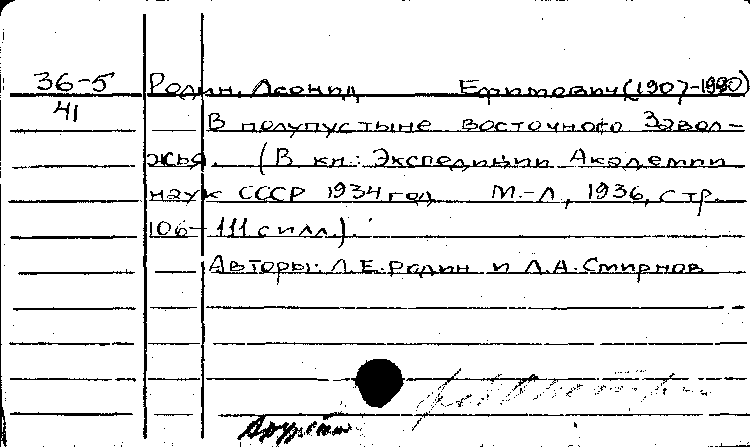 36-5 Родин, Леонид Ефимович (1907-1990)
41 В полупустыне восточного Завол-
жья. (В кн: Экспедиции Академии
наук СССР 1934 год М.-Л, 1936, стр.
106-111 с илл.).
Авторы: Л.Е.Родин и Л.А.Смирнов